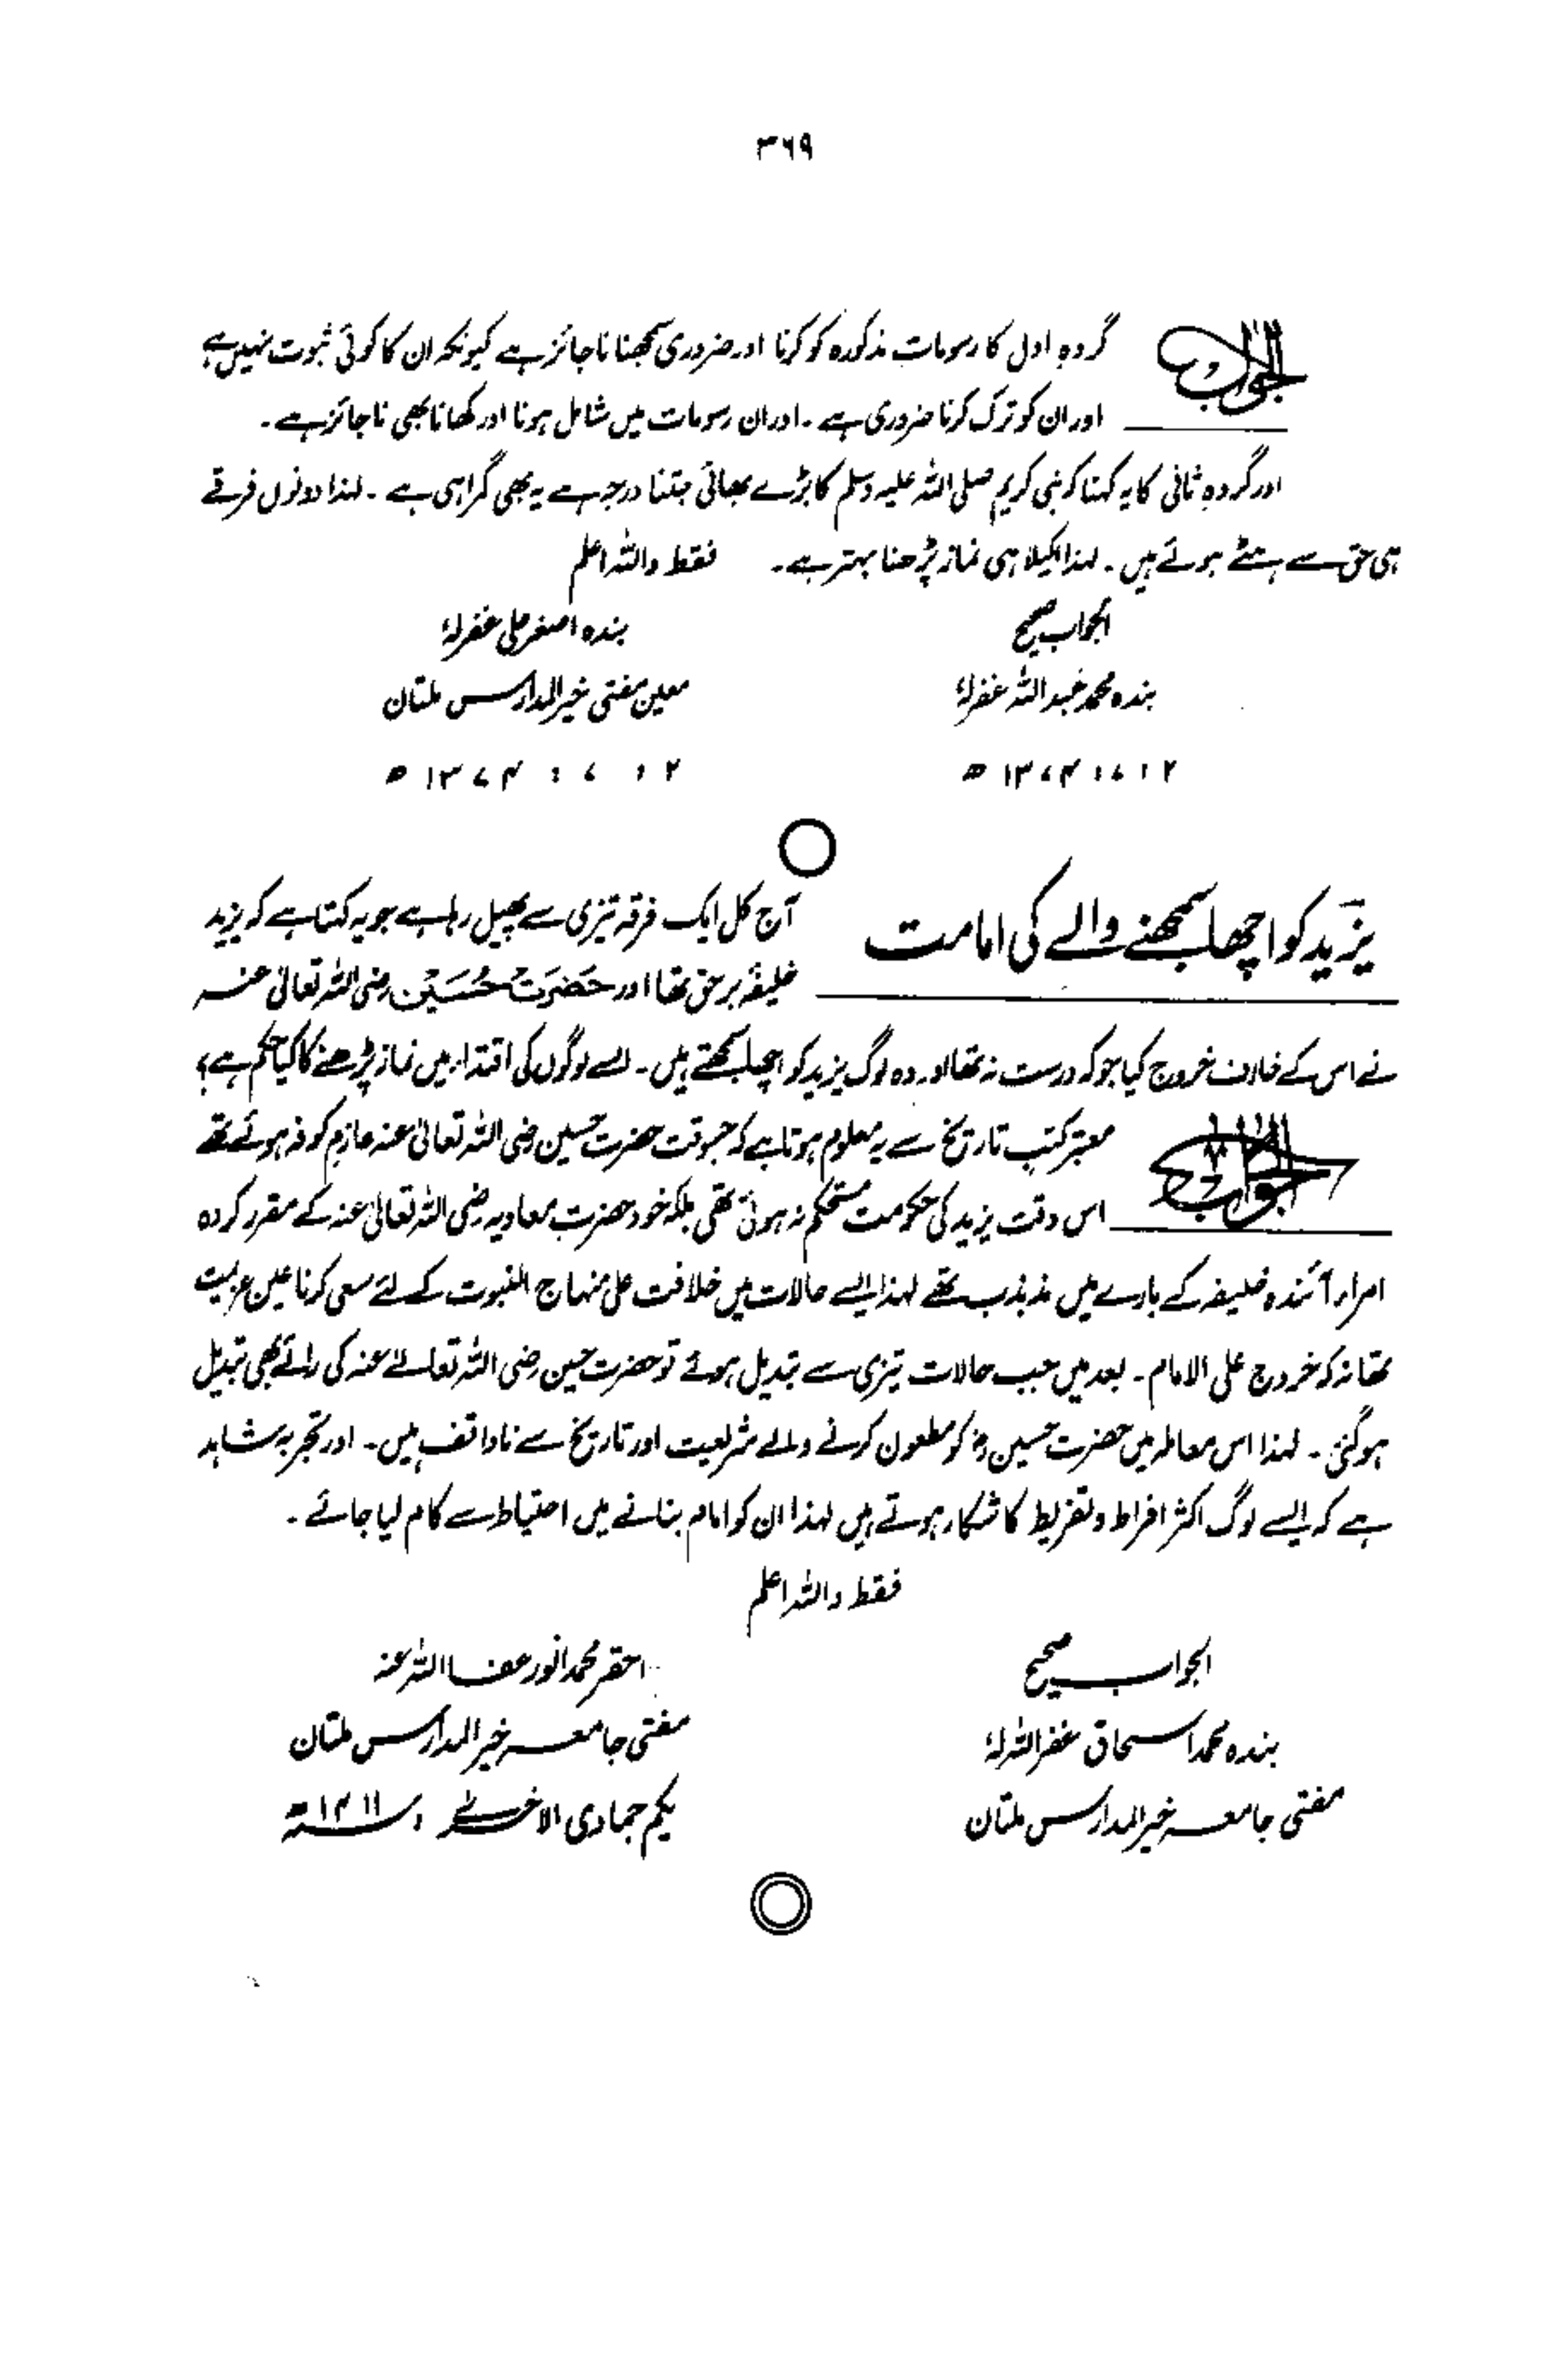 ۳۶۹
الجواب گروہِ اول کا رسومات مذکورہ کو کرنا اور ضروری سمجھنا ناجائز ہے کیونکہ ان کا کوئی ثبوت نہیں ہے
اور ان کو ترک کرنا ضروری ہے ۔ اور ان رسومات میں شامل ہونا اور کھانا بھی ناجائز ہے ۔
اور گروہِ ثانی کا یہ کہنا کہ نبی کریم صلی اللہ علیہ وسلم کا بڑے بھائی جتنا درجہ ہے یہ بھی گمراہی ہے ۔ لہٰذا دونوں فرقے
ہی حق سے ہٹے ہوئے ہیں ۔ لہٰذا اکیلا ہی نماز پڑھنا بہتر ہے ۔ فقط واللہ اعلم
الجواب صحیح
بندہ محمد عبداللہ غفرلہٗ
۲ ؍ ۷ ؍ ۱۳۷۴ ھ
بندہ اصغر علی غفرلہٗ
معین مفتی خیر المدارس ملتان
۲ ؍ ۷ ؍ ۱۳۷۴ ھ
یزید کو اچھا سمجھنے والے کی امامت
آج کل ایک فرقہ تیزی سے پھیل رہا ہے جو یہ کہتا ہے کہ یزید
خلیفۂ برحق تھا اور حَضرَت حُسَین رضی اللہ تعالیٰ عنہ
نے اس کے خلاف خروج کیا جو کہ درست نہ تھا اور وہ لوگ یزید کو اچھا سمجھتے ہیں ۔ ایسے لوگوں کی اقتداء میں نماز پڑھنے کا کیا حکم ہے ؟
الجواب معتبر کتبِ تاریخ سے یہ معلوم ہوتا ہے کہ جسوقت حضرت حسین رضی اللہ تعالیٰ عنہ عازمِ کوفہ ہوئے تھے
اس وقت یزید کی حکومت مستحکم نہ ہوئی تھی بلکہ خود حضرت معاویہ رضی اللہ تعالیٰ عنہ کے مقرر کردہ
امراء آئندہ خلیفہ کے بارے میں مذبذب تھے لہٰذا ایسے حالات میں خلافت علیٰ منہاج النبوت کے لئے سعی کرنا عین عزیمت
تھا نہ کہ خروج علی الامام ۔ بعد میں جب حالات تیزی سے تبدیل ہوئے تو حضرت حسین رضی اللہ تعالےٰ عنہ کی رائے بھی تبدیل
ہوگئی ۔ لہٰذا اس معاملہ میں حضرت حسین رضؓ کو مطعون کرنے والے شریعت اور تاریخ سے ناواقف ہیں ۔ اور تجربہ شاہد
ہے کہ ایسے لوگ اکثر افراط و تفریط کا شکار ہوتے ہیں لہٰذا ان کو امام بنانے میں احتیاط سے کام لیا جائے ۔
فقط واللہ اعلم
الجواب صحیح
بندہ محمد اسحاق غفراللہ لہٗ
مفتی جامعہ خیر المدارس ملتان
احقر محمد انور عفا اللہ عنہ
مفتی جامعہ خیر المدارس ملتان
یکم جمادی الاخریٰ ، ۱۴۱۱ھ